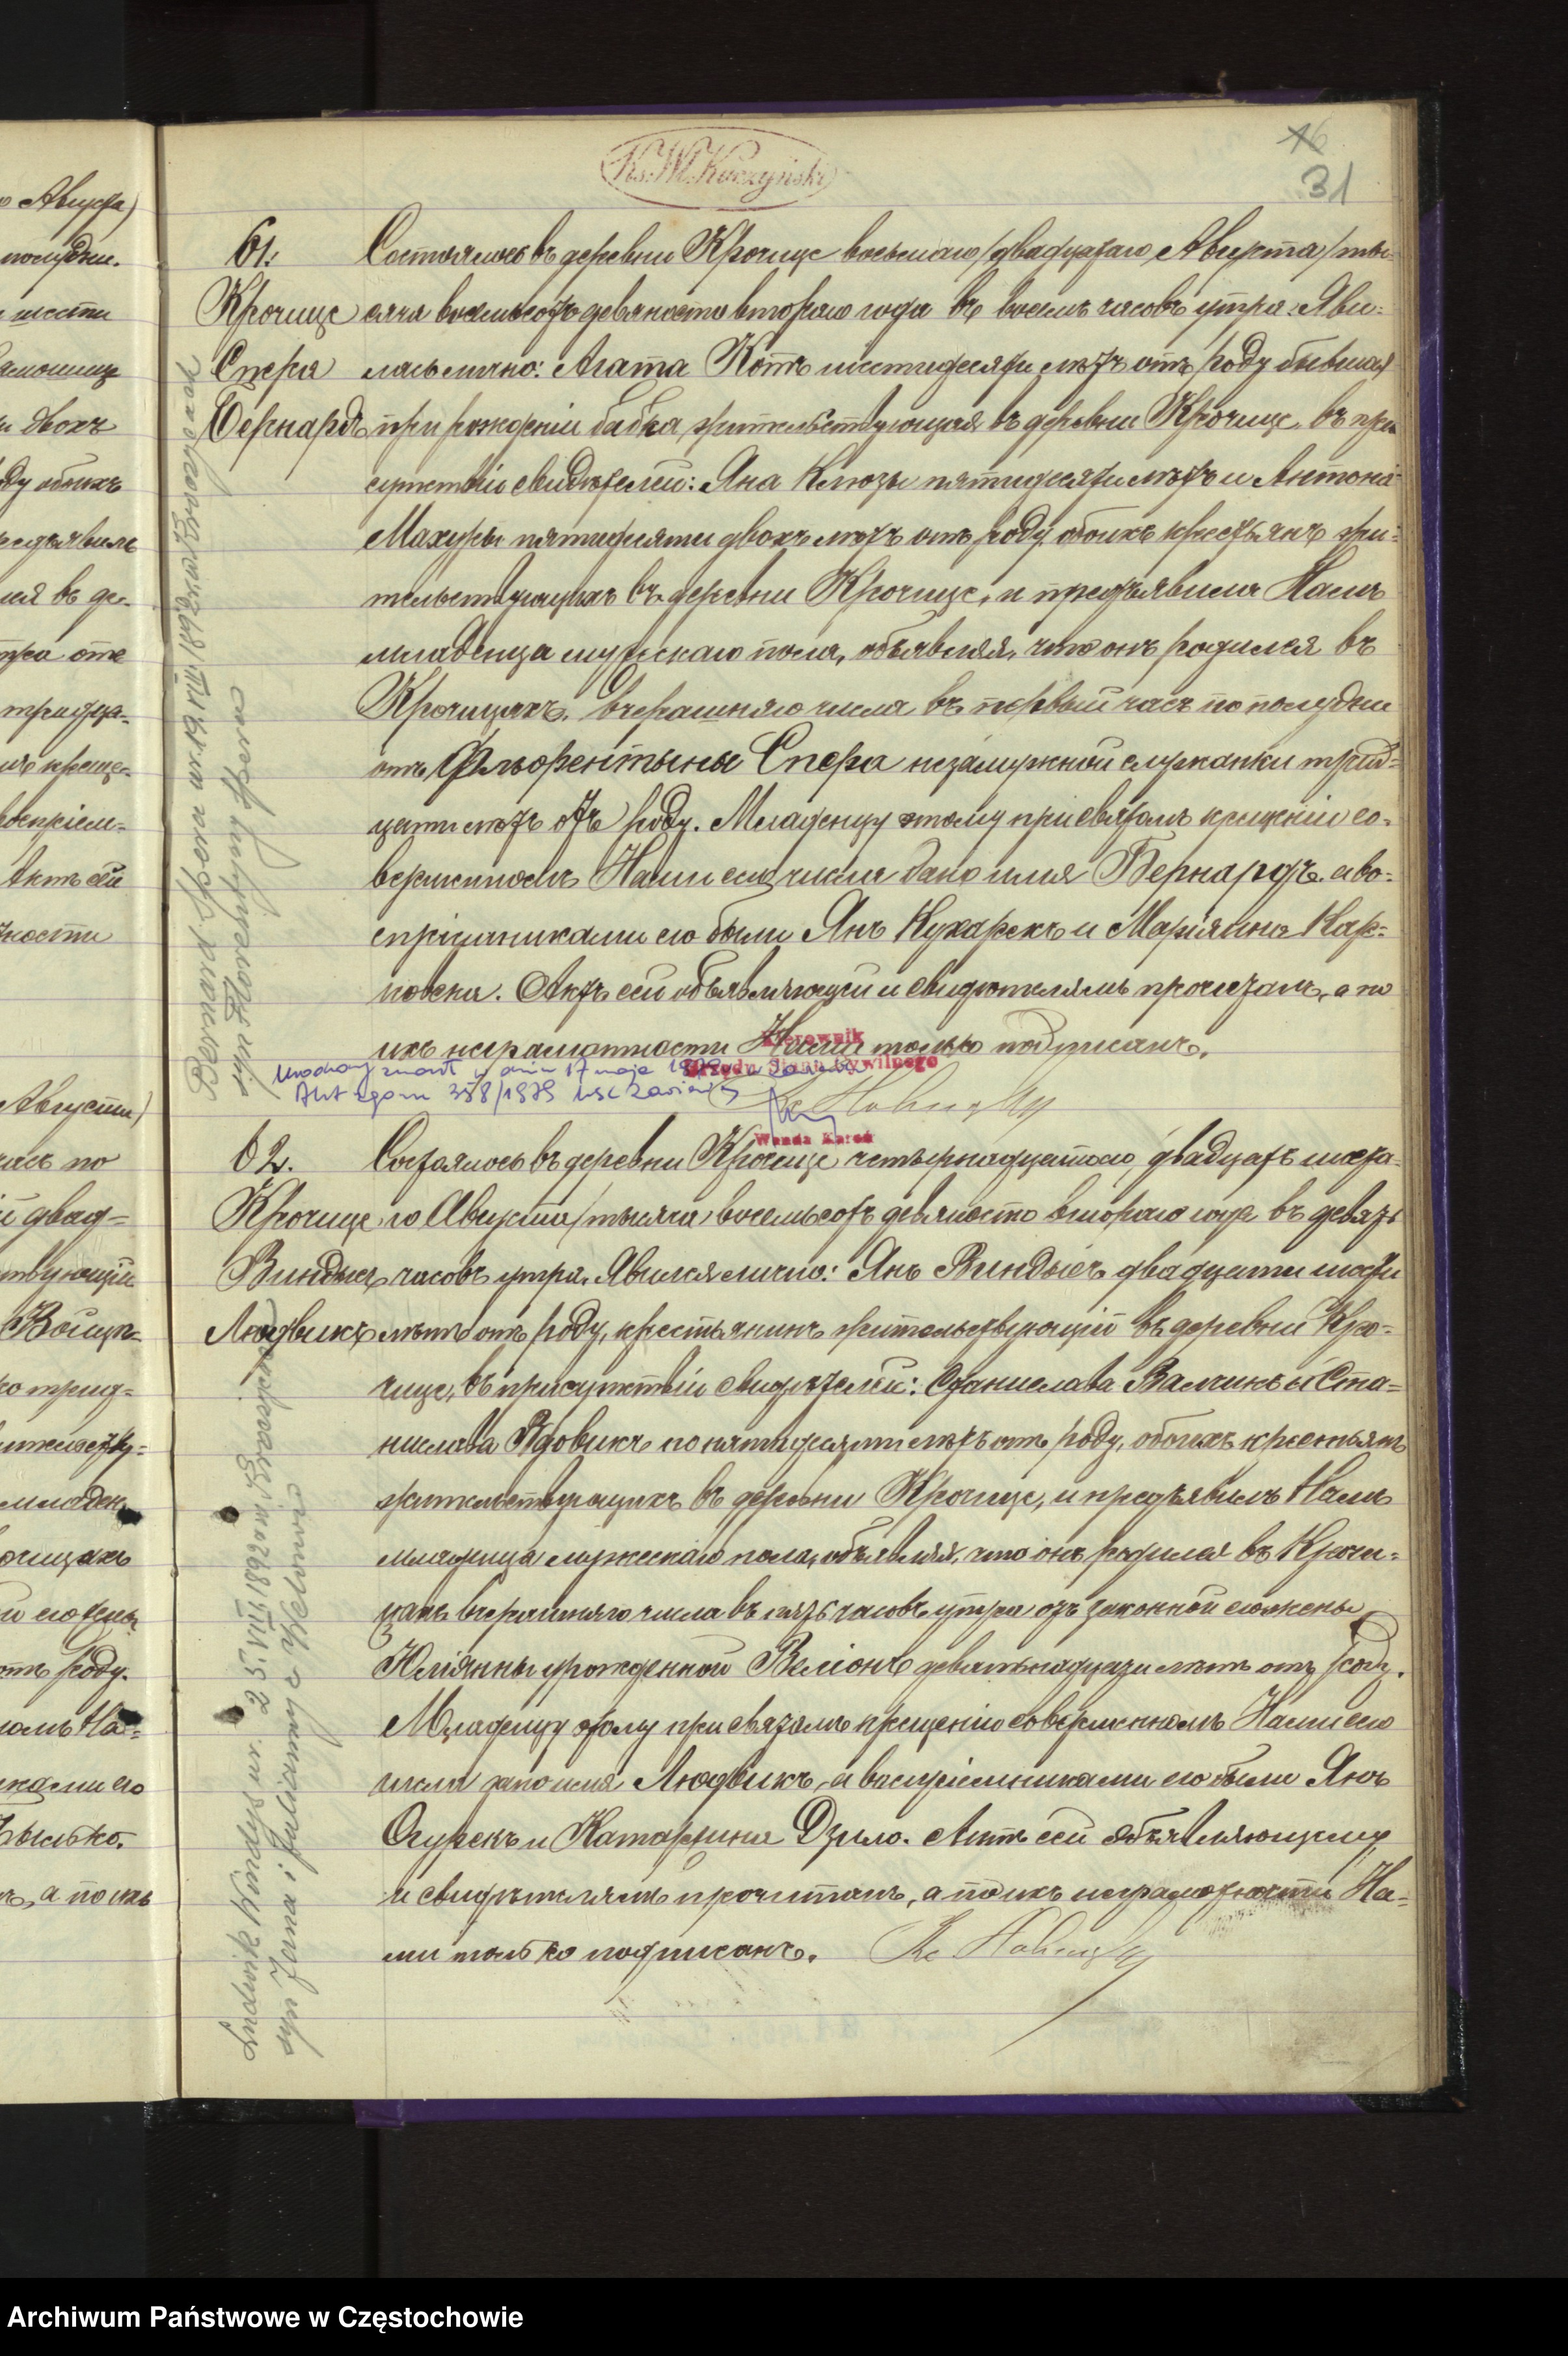 о Августа)
полудни.
шести
двохъ
ду обоихъ
редъявилъ
ся въ де-
тра отъ
тридца-
крещe-
воспріем-
Актъ сей
ности
Августа)
часъ по
й двад-
ствующій
Войцѣ-
ко трид-
младен
очицахъ
й его жены
отъ роду.
омъ На-
ками его
а по ихъ
Ks. Wł. Kuczyński
16
31
61. Состоялось въ деревни Крочице восьмаго /двадцатаго Августа/ ты-
Крочице сяча восемьсотъ девяносто втораго года въ восемь часовъ утра. Яви-
Спера лась лично: Агата Котъ шестидесяти лѣтъ отъ роду бывшая
Бернардъ при рожденіи бабка, жительствующая въ деревни Крочице, въ при
сутствіи свидѣтелей: Яна Клюзы пятидесяти лѣтъ и Антона
Махуры пятидесяти двохъ лѣтъ отъ роду обоихъ крестьянъ жи-
тельствующихъ въ деревни Крочице, и предъявила Намъ
младенца мужескаго пола, объявляя, что онъ родился въ
Крочицахъ вчерашняго числа въ первый часъ по полудни
отъ Фльорентыны Спера незамужной служанки трид-
цати лѣтъ отъ роду. Младенцу этому при святомъ крещеніи со-
вершенномъ Нами сего числа дано имя Бернардъ, а во-
спріемниками его были Янъ Кухарекъ и Маріянна Кар-
повска. Актъ сей объявляющей и свидѣтелямъ прочитанъ, а по
ихъ неграмотности Нами только подписанъ.
Bernard Spera ur. 19.VIII 1892 na Kroczycach
syn Florentyny Spera
Urodzony zmarł w dniu 17 maja 19
Akt zgonu 358/1979 USC Zawiercie
Kierownik
Urzędu Stanu Cywilnego
Wanda
62. Состоялось въ деревни Крочице четырнадцатаго /двадцать шеста-
Крочице го Августа/ тысяча восемьсотъ девяносто втораго года въ девять
Виндысъ часовъ утра. Явился лично: Янъ Виндысъ двадцати шести
Людвикъ лѣтъ отъ роду, крестьянинъ жительствующій въ деревни Кро-
чице, въ присутствіи свидѣтелей: Станислава Валчикъ и Ста-
нислава Вдовикъ по пятидесяти лѣтъ отъ роду, обоихъ крестьянъ
жительствующихъ въ деревни Крочице, и предъявилъ Намъ
младенца мужескаго пола, объявляя, что онъ родился въ Крочи-
цахъ вчерашняго числа въ пять часовъ утра отъ законной его жены
Юліянны урожденной Веліонъ девятьнадцати лѣтъ отъ роду.
Младенцу этому при святомъ крещеніи совершенномъ Нами сего
числа дано имя Людвикъ, а воспріемниками его были Янъ
Огурекъ и Катаржина Дзило. Актъ сей объявляющему
и свидѣтелямъ прочитанъ, а по ихъ неграмотности На-
ми только подписанъ.
Ludwik Windys ur. 25.VIII 1892 w Kroczycach
syn Jana i Julianny z Wielonów
Archiwum Państwowe w Częstochowie